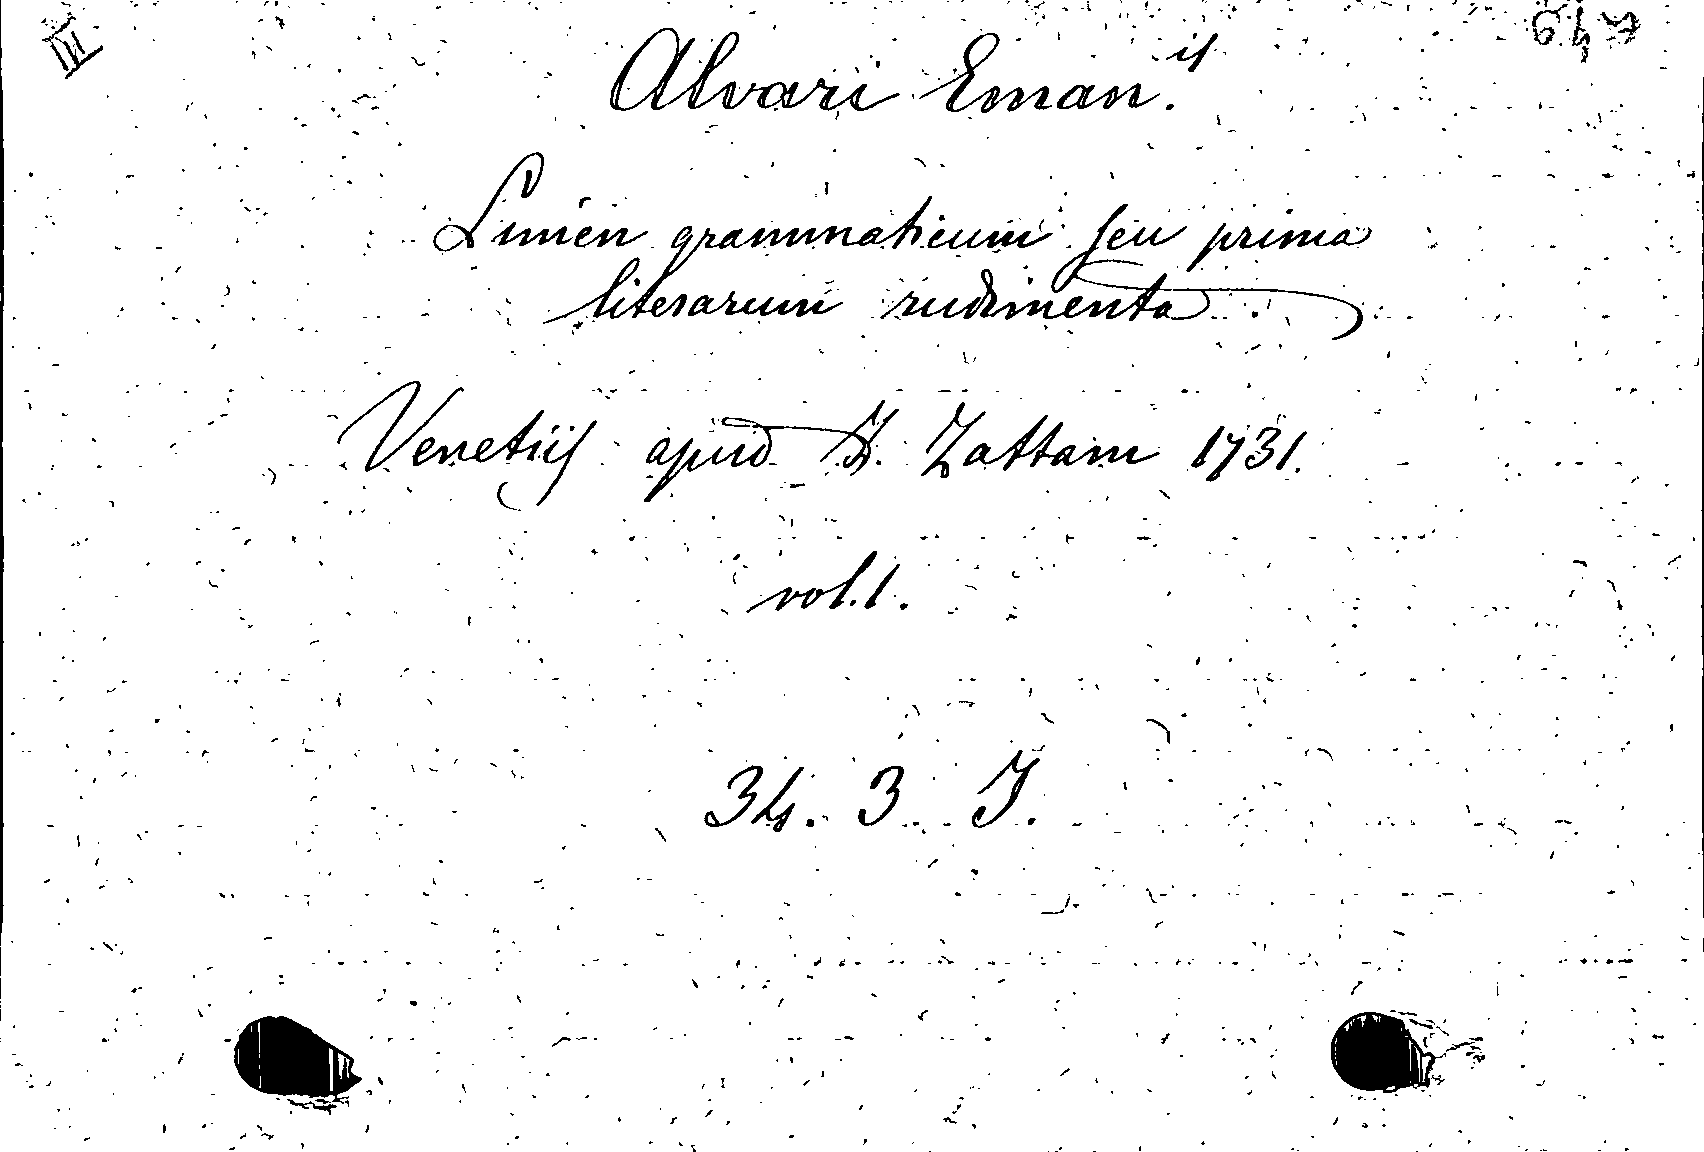 III
Alvari Eman.is
Limen grammaticum seu prima
literarum rudimenta.
Venetiis apud J. Zattam 1731.
vol. 1.
34. 3. J.